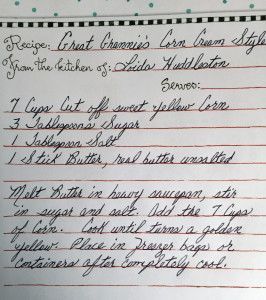 Recipe: Great Grannie's Corn Cream Style
From the kitchen of: Loida Huddleston
Serves:
7 Cups Cut off sweet yellow Corn
3 Tablespoons Sugar
1 Tablespoon Salt
1 Stick Butter, real butter unsalted
Melt Butter in heavy saucepan, stir
in sugar and salt. Add the 7 Cups
of Corn. Cook until turns a golden
yellow. Place in Freezer bags or
Containers after completely cool.